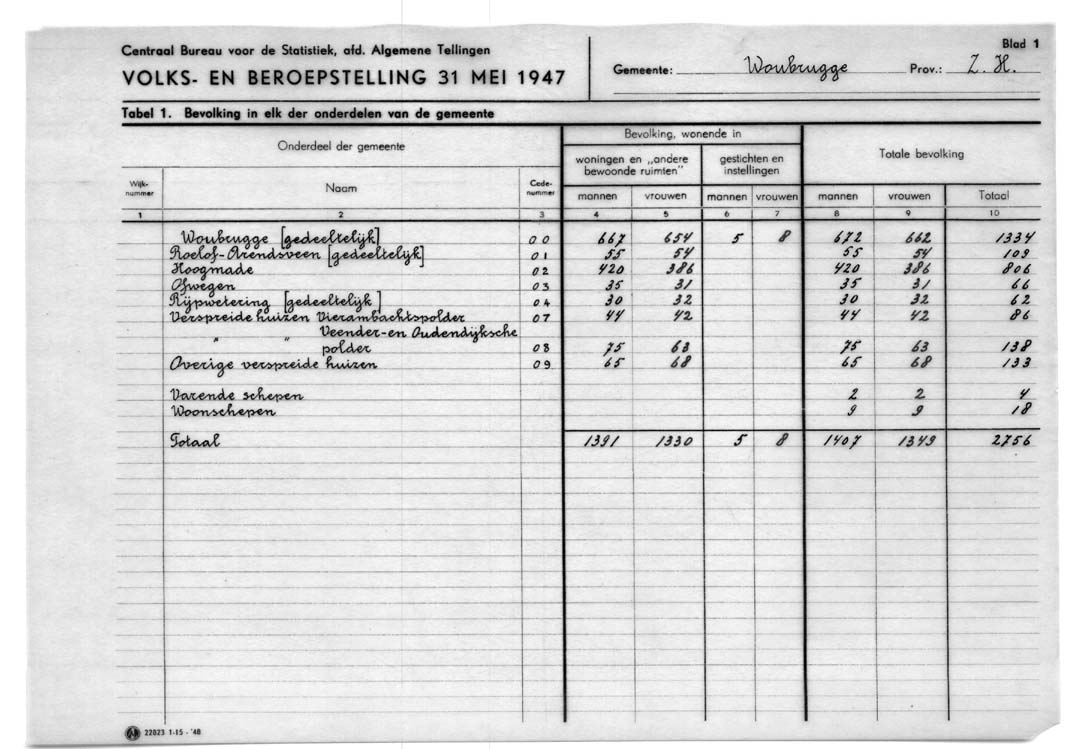 Centraal Bureau voor de Statistiek, afd. Algemene Tellingen
VOLKS- EN BEROEPSTELLING 31 MEI 1947
Gemeente: Woubrugge Prov.: Z. H.
Blad 1
Tabel 1. Bevolking in elk der onderdelen van de gemeente
Onderdeel der gemeente
Bevolking, wonende in
Totale bevolking
woningen en „andere bewoonde ruimten"
gestichten en instellingen
Wijk-nummer Naam Code-nummer mannen vrouwen mannen vrouwen mannen vrouwen Totaal
1 2 3 4 5 6 7 8 9 10
Woubrugge [gedeeltelijk] 00 667 654 5 8 672 662 1334
Roelof-Arendsveen [gedeeltelijk] 01 55 54 55 54 109
Hoogmade 02 420 386 420 386 806
Ofwegen 03 35 31 35 31 66
Rijpwetering [gedeeltelijk] 04 30 32 30 32 62
Verspreide huizen Vierambachtspolder 07 44 42 44 42 86
" " Veender-en Oudendijksche
polder 08 75 63 75 63 138
Overige verspreide huizen 09 65 68 65 68 133
Varende schepen 2 2 4
Woonschepen 9 9 18
Totaal 1391 1330 5 8 1407 1349 2756
22823 1-15 - '48